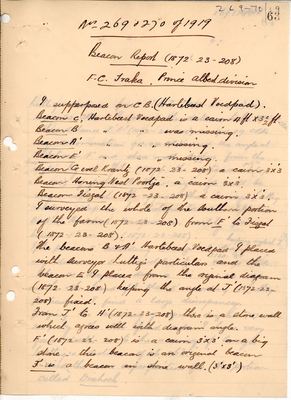 269-70
63
No. 269 & 270 of 1919
Beacon Report (1872-23-208)
F.C. Traka, Prince Albert division
I superposed on C.B. (Hartebeest Voedpad).
Beacon C, Hartebeest Voedpad is a cairn
Beacon B was missing.
Beacon A' missing.
Beacon E' missing.
Beacon Kranz (1872-23-208) a cairn 3x3
Beacon Honing Nest Poortje, a cairn 3x3
Beacon (1872-23-208) a cairn 3'x3'.
I surveyed the whole of the Southern portion
of the farm (1872-23-208) from to
(1872-23-208).
The beacons B & A' Hartebeest Voedpad I placed
with surveyor particulars and the
beacon E' I placed from the original diagram
(1872-23-208) keeping the angle at J' (1872-23-
208) fixed.
From J' to H' (1872-23-208) there is a stone wall
which agrees with diagram angle.
F' (1872-23-208) is a cairn 3'x3' on a big
stone - this beacon is an original beacon
J' is a beacon in stone wall. (3'x3')